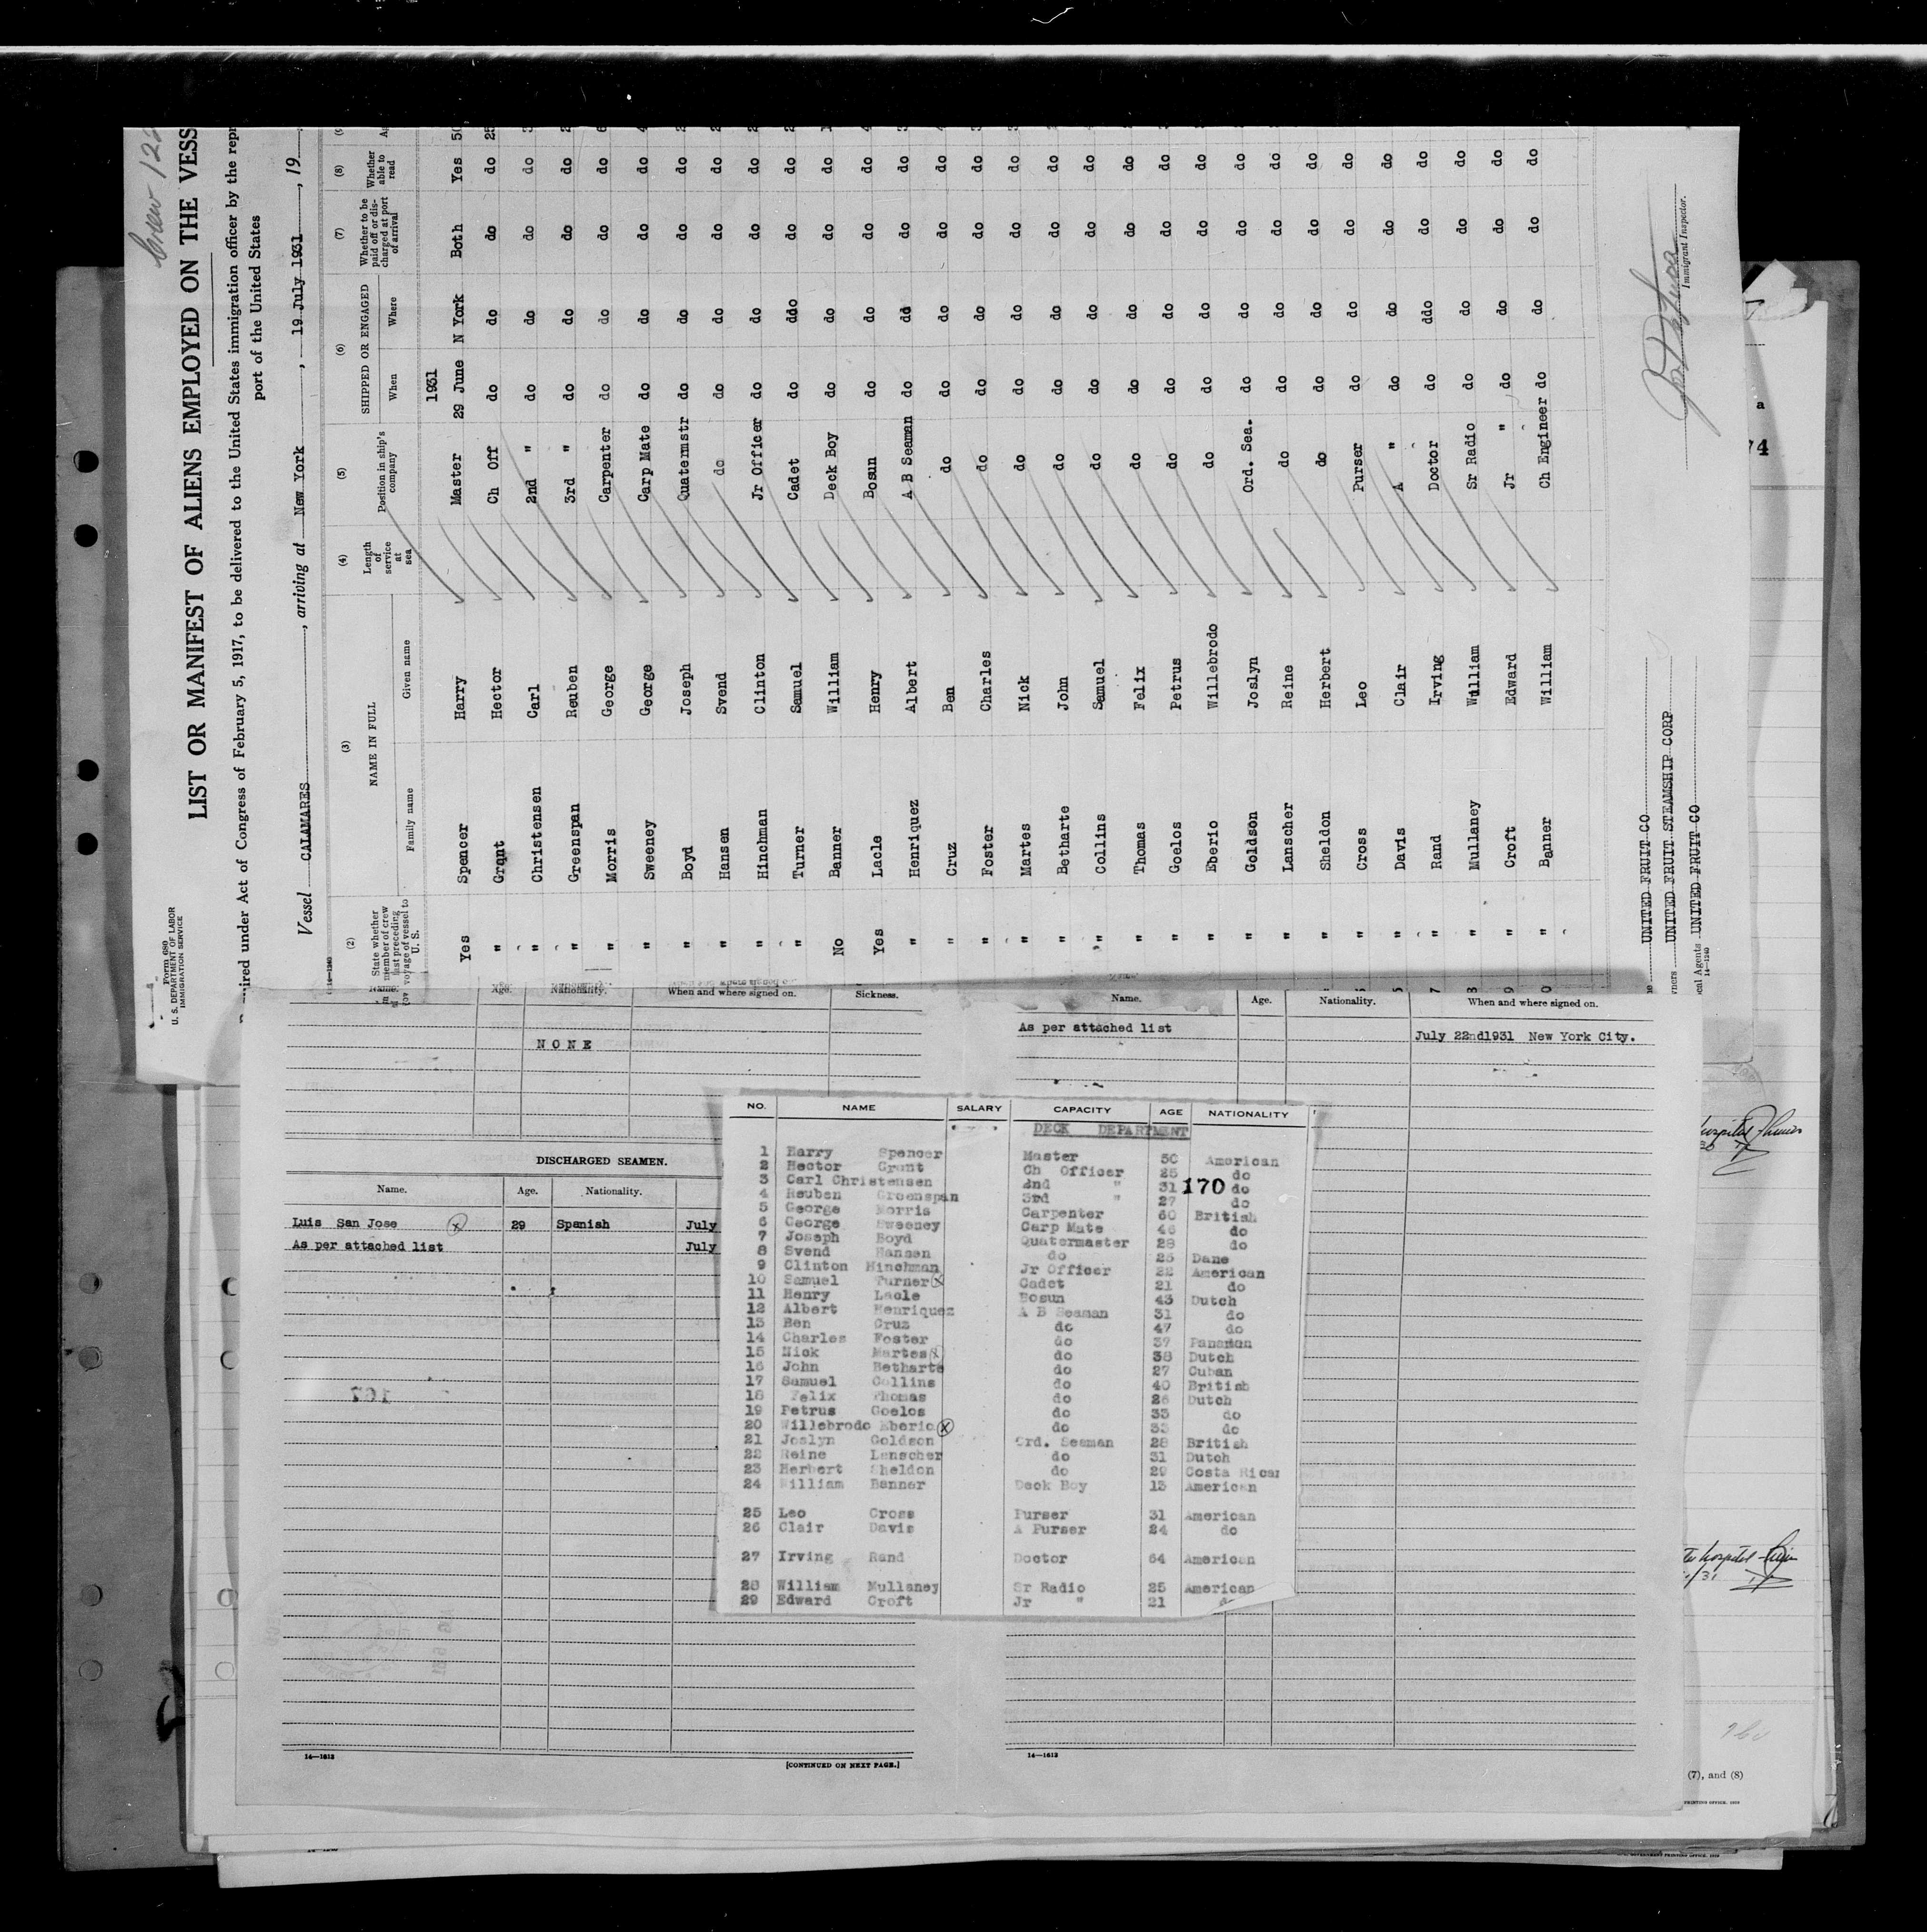 Crew 122
Form 680
U. S. DEPARTMENT OF LABOR
IMMIGRATION SERVICE
LIST OR MANIFEST OF ALIENS EMPLOYED ON THE VESS
ired under Act of Congress of February 5, 1917, to be delivered to the United States immigration officer by the repr
port of the United States
Vessel CALAMARES, arriving at New York, 19 July 1931, 19
(2) (3) (4) (5) (6) (7) (8)
State whether member of crew last preceding voyage of vessel to U. S. NAME IN FULL Family name Given name Length of service at sea Position in ship's company SHIPPED OR ENGAGED When Where Whether to be paid off or discharged at port of arrival Whether able to read
1931
Yes Spencer Harry Master 29 June N York Both Yes 50
" Grant Hector Ch Off do do do do 25
" Christensen Carl 2nd " do do do do
" Greenspan Reuben 3rd " do do do do
" Morris George Carpenter do do do do
" Sweeney George Carp Mate do do do do
" Boyd Joseph Quatermstr do do do do
" Hansen Svend do do do do do
" Hinchman Clinton Jr Officer do do do do
" Turner Samuel Cadet do ddo do do
No Banner William Deck Boy do do do do
Yes Lacle Henry Bosun do do do do
" Henriquez Albert A B Seaman do do do do
" Cruz Ben do do do do do
" Foster Charles do do do do do
" Martes Nick do do do do do
" Betharte John do do do do do
" Collins Samuel do do do do do
" Thomas Felix do do do do do
" Goelos Petrus do do do do do
" Eberio Willebrodo do do do do do
" Goldson Joslyn Ord. Sea. do do do do
" Lanscher Reine do do do do do
" Sheldon Herbert do do do do do
" Cross Leo Purser do do do do
" Davis Clair A " do do do do
" Rand Irving Doctor do ddo do do
" Mullaney William Sr Radio do do do do
" Croft Edward Jr " do do do do
" Banner William Ch Engineer do do do do
Immigrant Inspector.
UNITED FRUIT CO
UNITED FRUIT STEAMSHIP CORP
Local Agents UNITED FRUIT CO
14—1240
Name. Age. Nationality. When and where signed on. Sickness.
NONE
Name. Age. Nationality. When and where signed on.
As per attached list July 22nd1931 New York City.
DISCHARGED SEAMEN.
Name. Age. Nationality.
Luis San Jose 29 Spanish July
As per attached list July
167
NO. NAME SALARY CAPACITY AGE NATIONALITY
DECK DEPARTMENT
1 Harry Spencer Master 50 American
2 Hector Grant Ch Officer 25 do
3 Carl Christensen 2nd " 31 do
170
4 Reuben Greenspan 3rd " 27 do
5 George Morris Carpenter 60 British
6 George Sweeney Carp Mate 46 do
7 Joseph Boyd Quatermaster 28 do
8 Svend Hansen do 25 Dane
9 Clinton Hinchman Jr Officer 22 American
10 Samuel Turner Cadet 21 do
11 Henry Lacle Bosun 43 Dutch
12 Albert Henriquez A B Seaman 31 do
13 Ben Cruz do 47 do
14 Charles Foster do 37 Panaman
15 Nick Martes do 38 Dutch
16 John Betharte do 27 Cuban
17 Samuel Collins do 40 British
18 Felix Thomas do 26 Dutch
19 Petrus Goelos do 33 do
20 Willebrodo Eberio do 33 do
21 Joslyn Goldson Ord. Seaman 28 British
22 Reine Lanscher do 31 Dutch
23 Herbert Sheldon do 29 Costa Rican
24 William Banner Deck Boy 13 American
25 Leo Cross Purser 31 American
26 Clair Davis A Purser 24 do
27 Irving Rand Doctor 64 American
28 William Mullaney Sr Radio 25 American
29 Edward Croft Jr " 21
14—1612
[CONTINUED ON NEXT PAGE.]
14—1612
a
74
hospital
hospital
(7), and (8)
PRINTING OFFICE